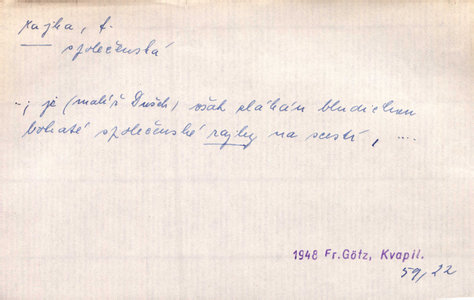 rajha, f.
společenská
..; je (malíř Dušek) však sláhán bludičkou
bohaté společenské rajhy na scestí, ....
1948 Fr.Götz, Kvapil.
59,22